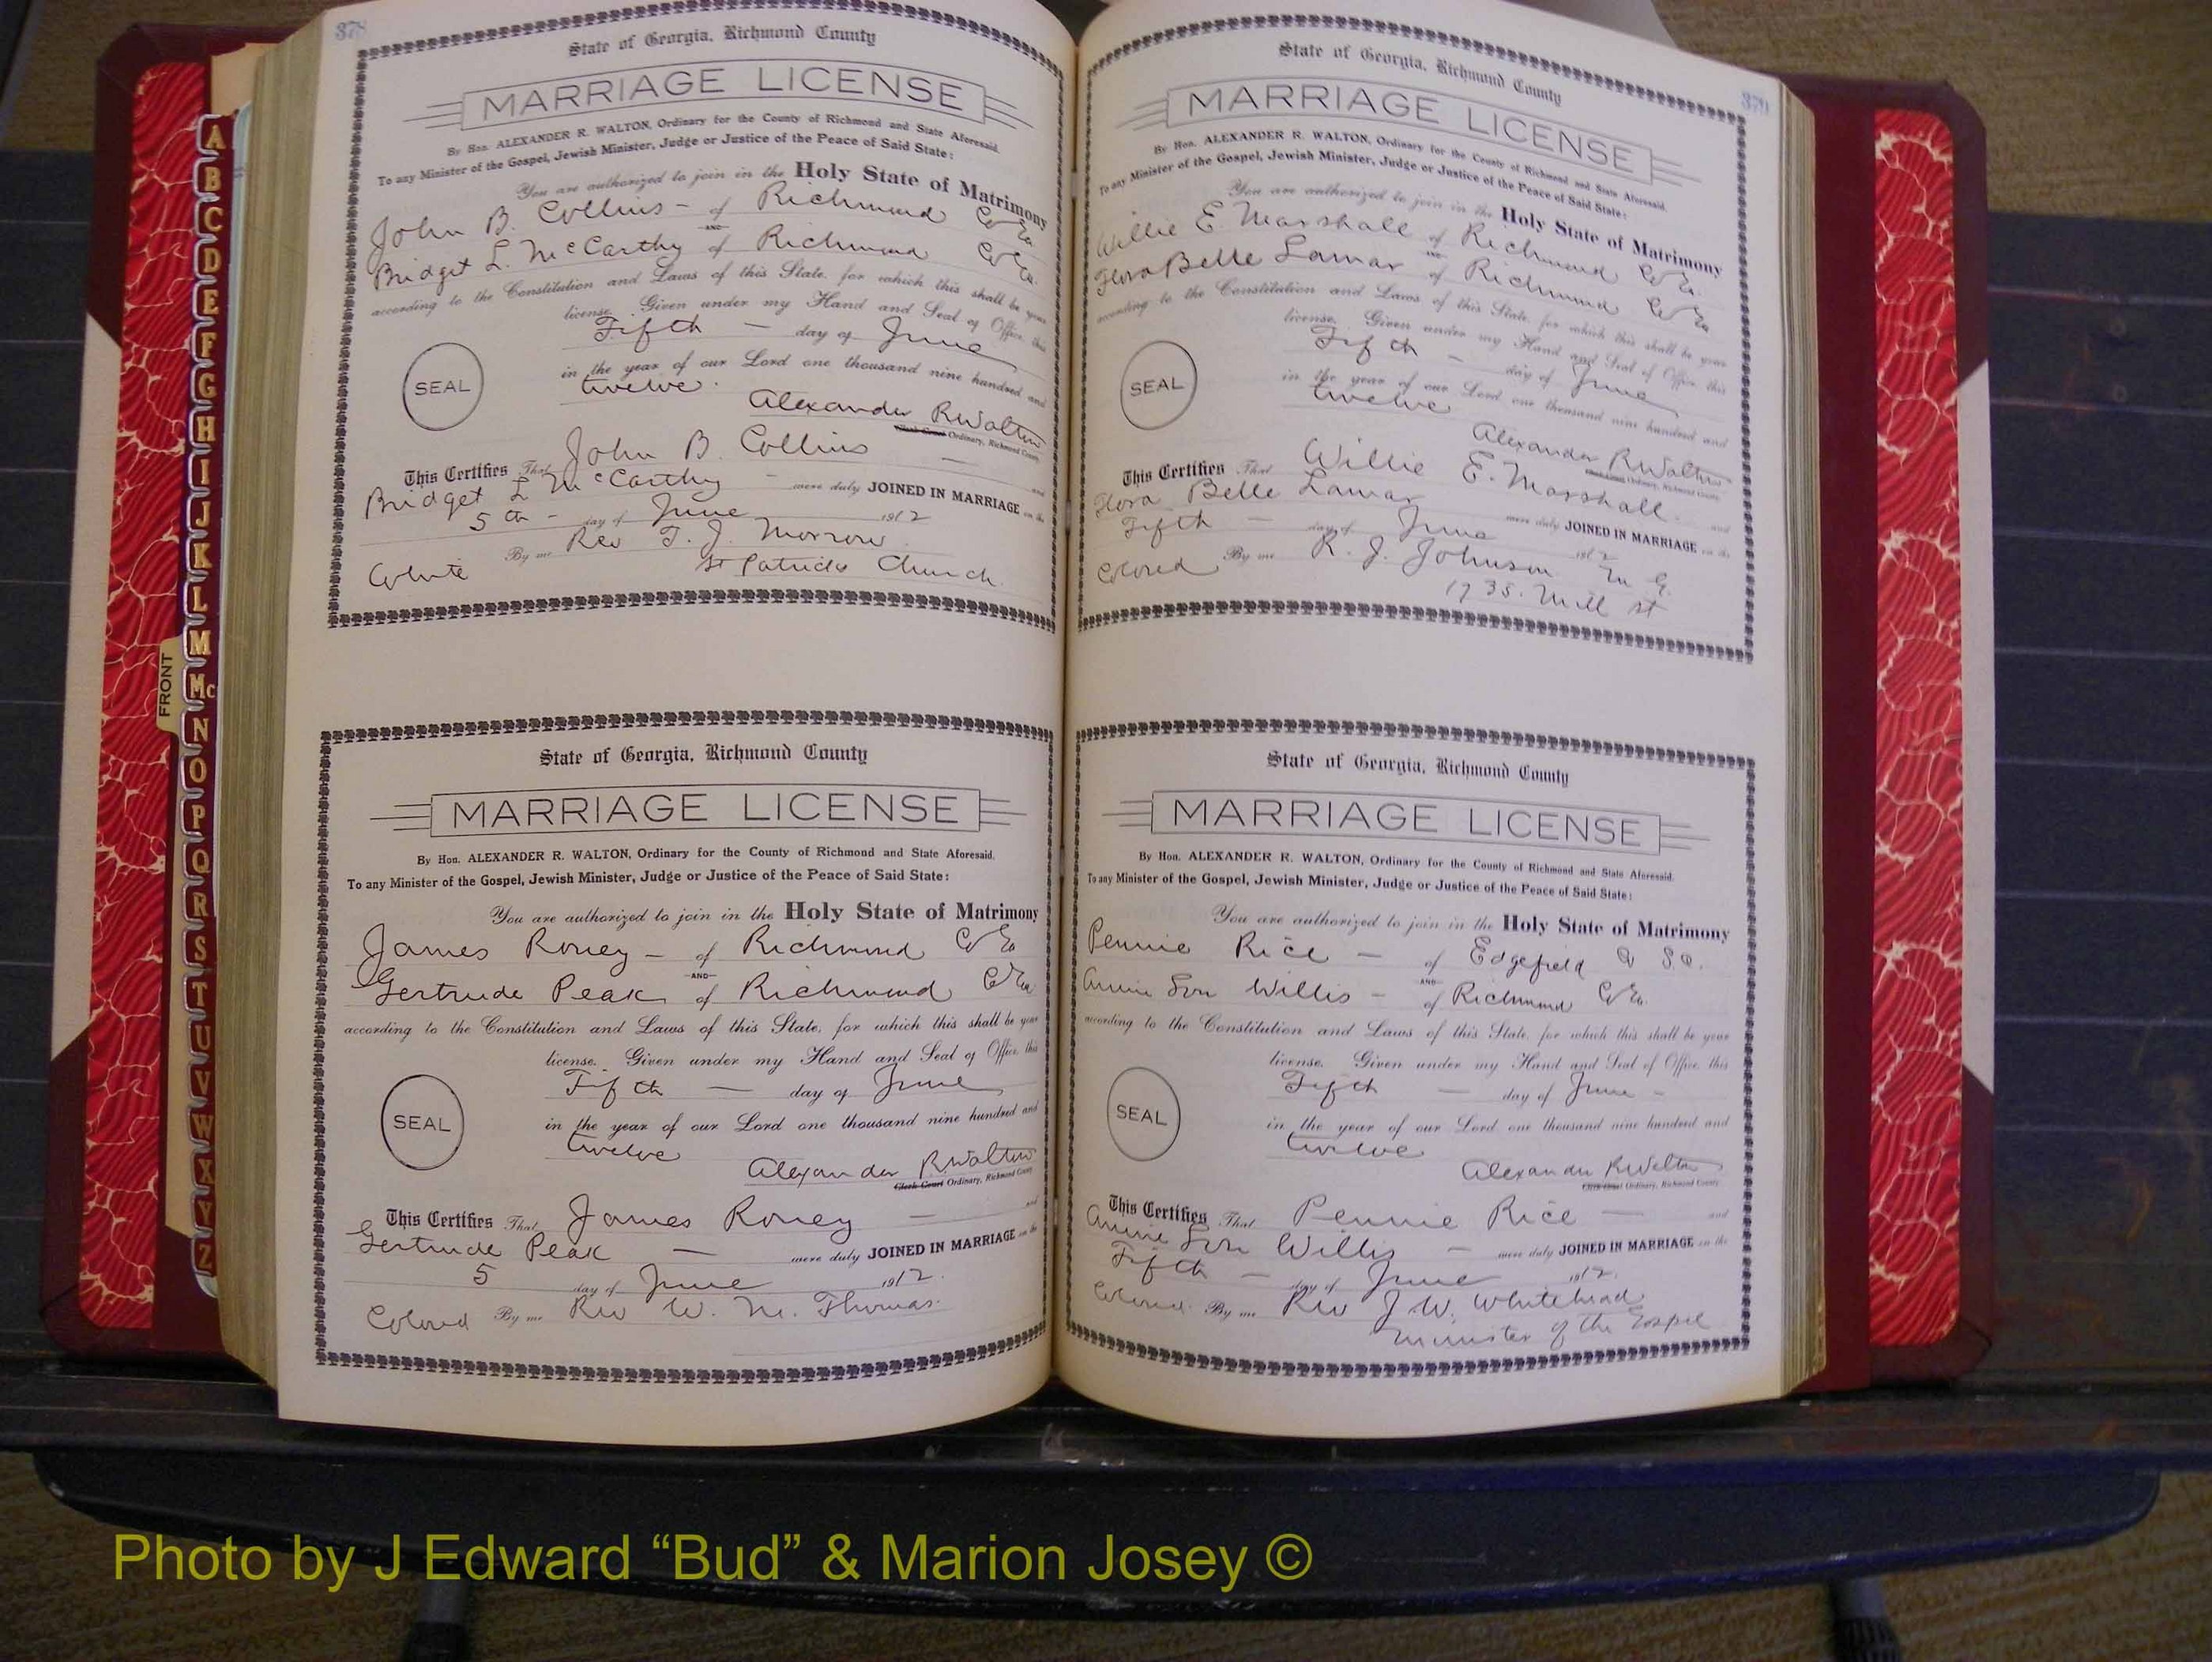 378
State of Georgia, Richmond County
MARRIAGE LICENSE
By Hon. ALEXANDER R. WALTON, Ordinary for the County of Richmond and State Aforesaid.
To any Minister of the Gospel, Jewish Minister, Judge or Justice of the Peace of Said State:
You are authorized to join in the Holy State of Matrimony
John B. Collins - of Richmond Co Ga.
AND
Bridget L. McCarthy of Richmond Co Ga.
according to the Constitution and Laws of this State, for which this shall be your
license. Given under my Hand and Seal of Office, this
Fifth - day of June
in the year of our Lord one thousand nine hundred and
twelve.
SEAL
Alexander R Walton
Clerk Court Ordinary, Richmond County.
This Certifies That John B. Collins - and
Bridget L McCarthy - were duly JOINED IN MARRIAGE on the
5th - day of June 1912
By me Rev T. J. Morrow
White St Patricks Church.
State of Georgia, Richmond County
MARRIAGE LICENSE
By Hon. ALEXANDER R. WALTON, Ordinary for the County of Richmond and State Aforesaid.
To any Minister of the Gospel, Jewish Minister, Judge or Justice of the Peace of Said State:
You are authorized to join in the Holy State of Matrimony
James Roney - of Richmond Co Ga
-AND-
Gertrude Peak of Richmond Co Ga
according to the Constitution and Laws of this State, for which this shall be your
license. Given under my Hand and Seal of Office, this
Fifth - day of June
in the year of our Lord one thousand nine hundred and
twelve
SEAL
Alexander R Walton
Clerk Court Ordinary, Richmond County
This Certifies That James Roney - and
Gertrude Peak - were duly JOINED IN MARRIAGE on the
5 day of June 1912.
Colored By me Rev W. M. Thomas.
379
State of Georgia, Richmond County
MARRIAGE LICENSE
By Hon. ALEXANDER R. WALTON, Ordinary for the County of Richmond and State Aforesaid.
To any Minister of the Gospel, Jewish Minister, Judge or Justice of the Peace of Said State:
You are authorized to join in the Holy State of Matrimony
Willie E. Marshall of Richmond Co Ga.
AND
Flora Belle Lamar of Richmond Co Ga
according to the Constitution and Laws of this State, for which this shall be your
license. Given under my Hand and Seal of Office, this
Fifth - day of June
in the year of our Lord one thousand nine hundred and
twelve
SEAL
Alexander R Walton
Clerk Court Ordinary, Richmond County
This Certifies That Willie E. Marshall. and
Flora Belle Lamar were duly JOINED IN MARRIAGE on the
Fifth - day of June 1912
Colored By me R. J. Johnson M G.
1735. Mill St
State of Georgia, Richmond County
MARRIAGE LICENSE
By Hon. ALEXANDER R. WALTON, Ordinary for the County of Richmond and State Aforesaid.
To any Minister of the Gospel, Jewish Minister, Judge or Justice of the Peace of Said State:
You are authorized to join in the Holy State of Matrimony
Pennie Rice - of Edgefield Co S.C.
AND
Annie Willis - of Richmond Co Ga.
according to the Constitution and Laws of this State, for which this shall be your
license. Given under my Hand and Seal of Office, this
Fifth - day of June -
in the year of our Lord one thousand nine hundred and
twelve
SEAL
Alexander R Walton
Clerk Court Ordinary, Richmond County
This Certifies That Pennie Rice - and
Annie Willis - were duly JOINED IN MARRIAGE on the
Fifth - day of June 1912.
Colored. By me Rev J. W. Whitehead
Minister of the Gospel
A
B
C
D
E
F
G
H
I
J
K
L
M
Mc
N
O
P
Q
R
S
T
U
V
W
X
Y
Z
FRONT
Photo by J Edward “Bud” & Marion Josey ©